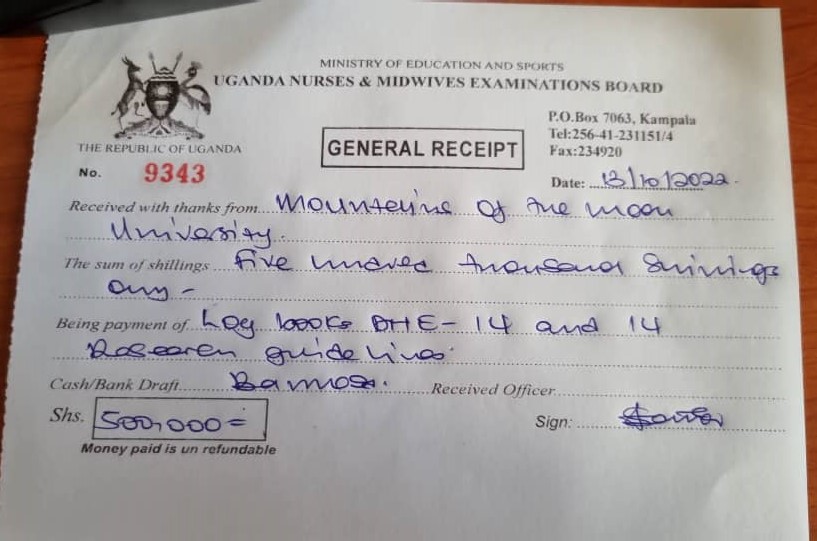 MINISTRY OF EDUCATION AND SPORTS
UGANDA NURSES & MIDWIVES EXAMINATIONS BOARD
P.O.Box 7063, Kampala
Tel:256-41-231151/4
Fax:234920
THE REPUBLIC OF UGANDA
GENERAL RECEIPT
No. 9343
Date: 13/10/2022.
Received with thanks from Mountains of the moon
University.
The sum of shillings five hundred thousand Shillings
only -
Being payment of Log books DHE- 14 and 14
Research guidelines.
Cash/Bank Draft Received Officer
Shs. 500,000=
Sign:
Money paid is un refundable